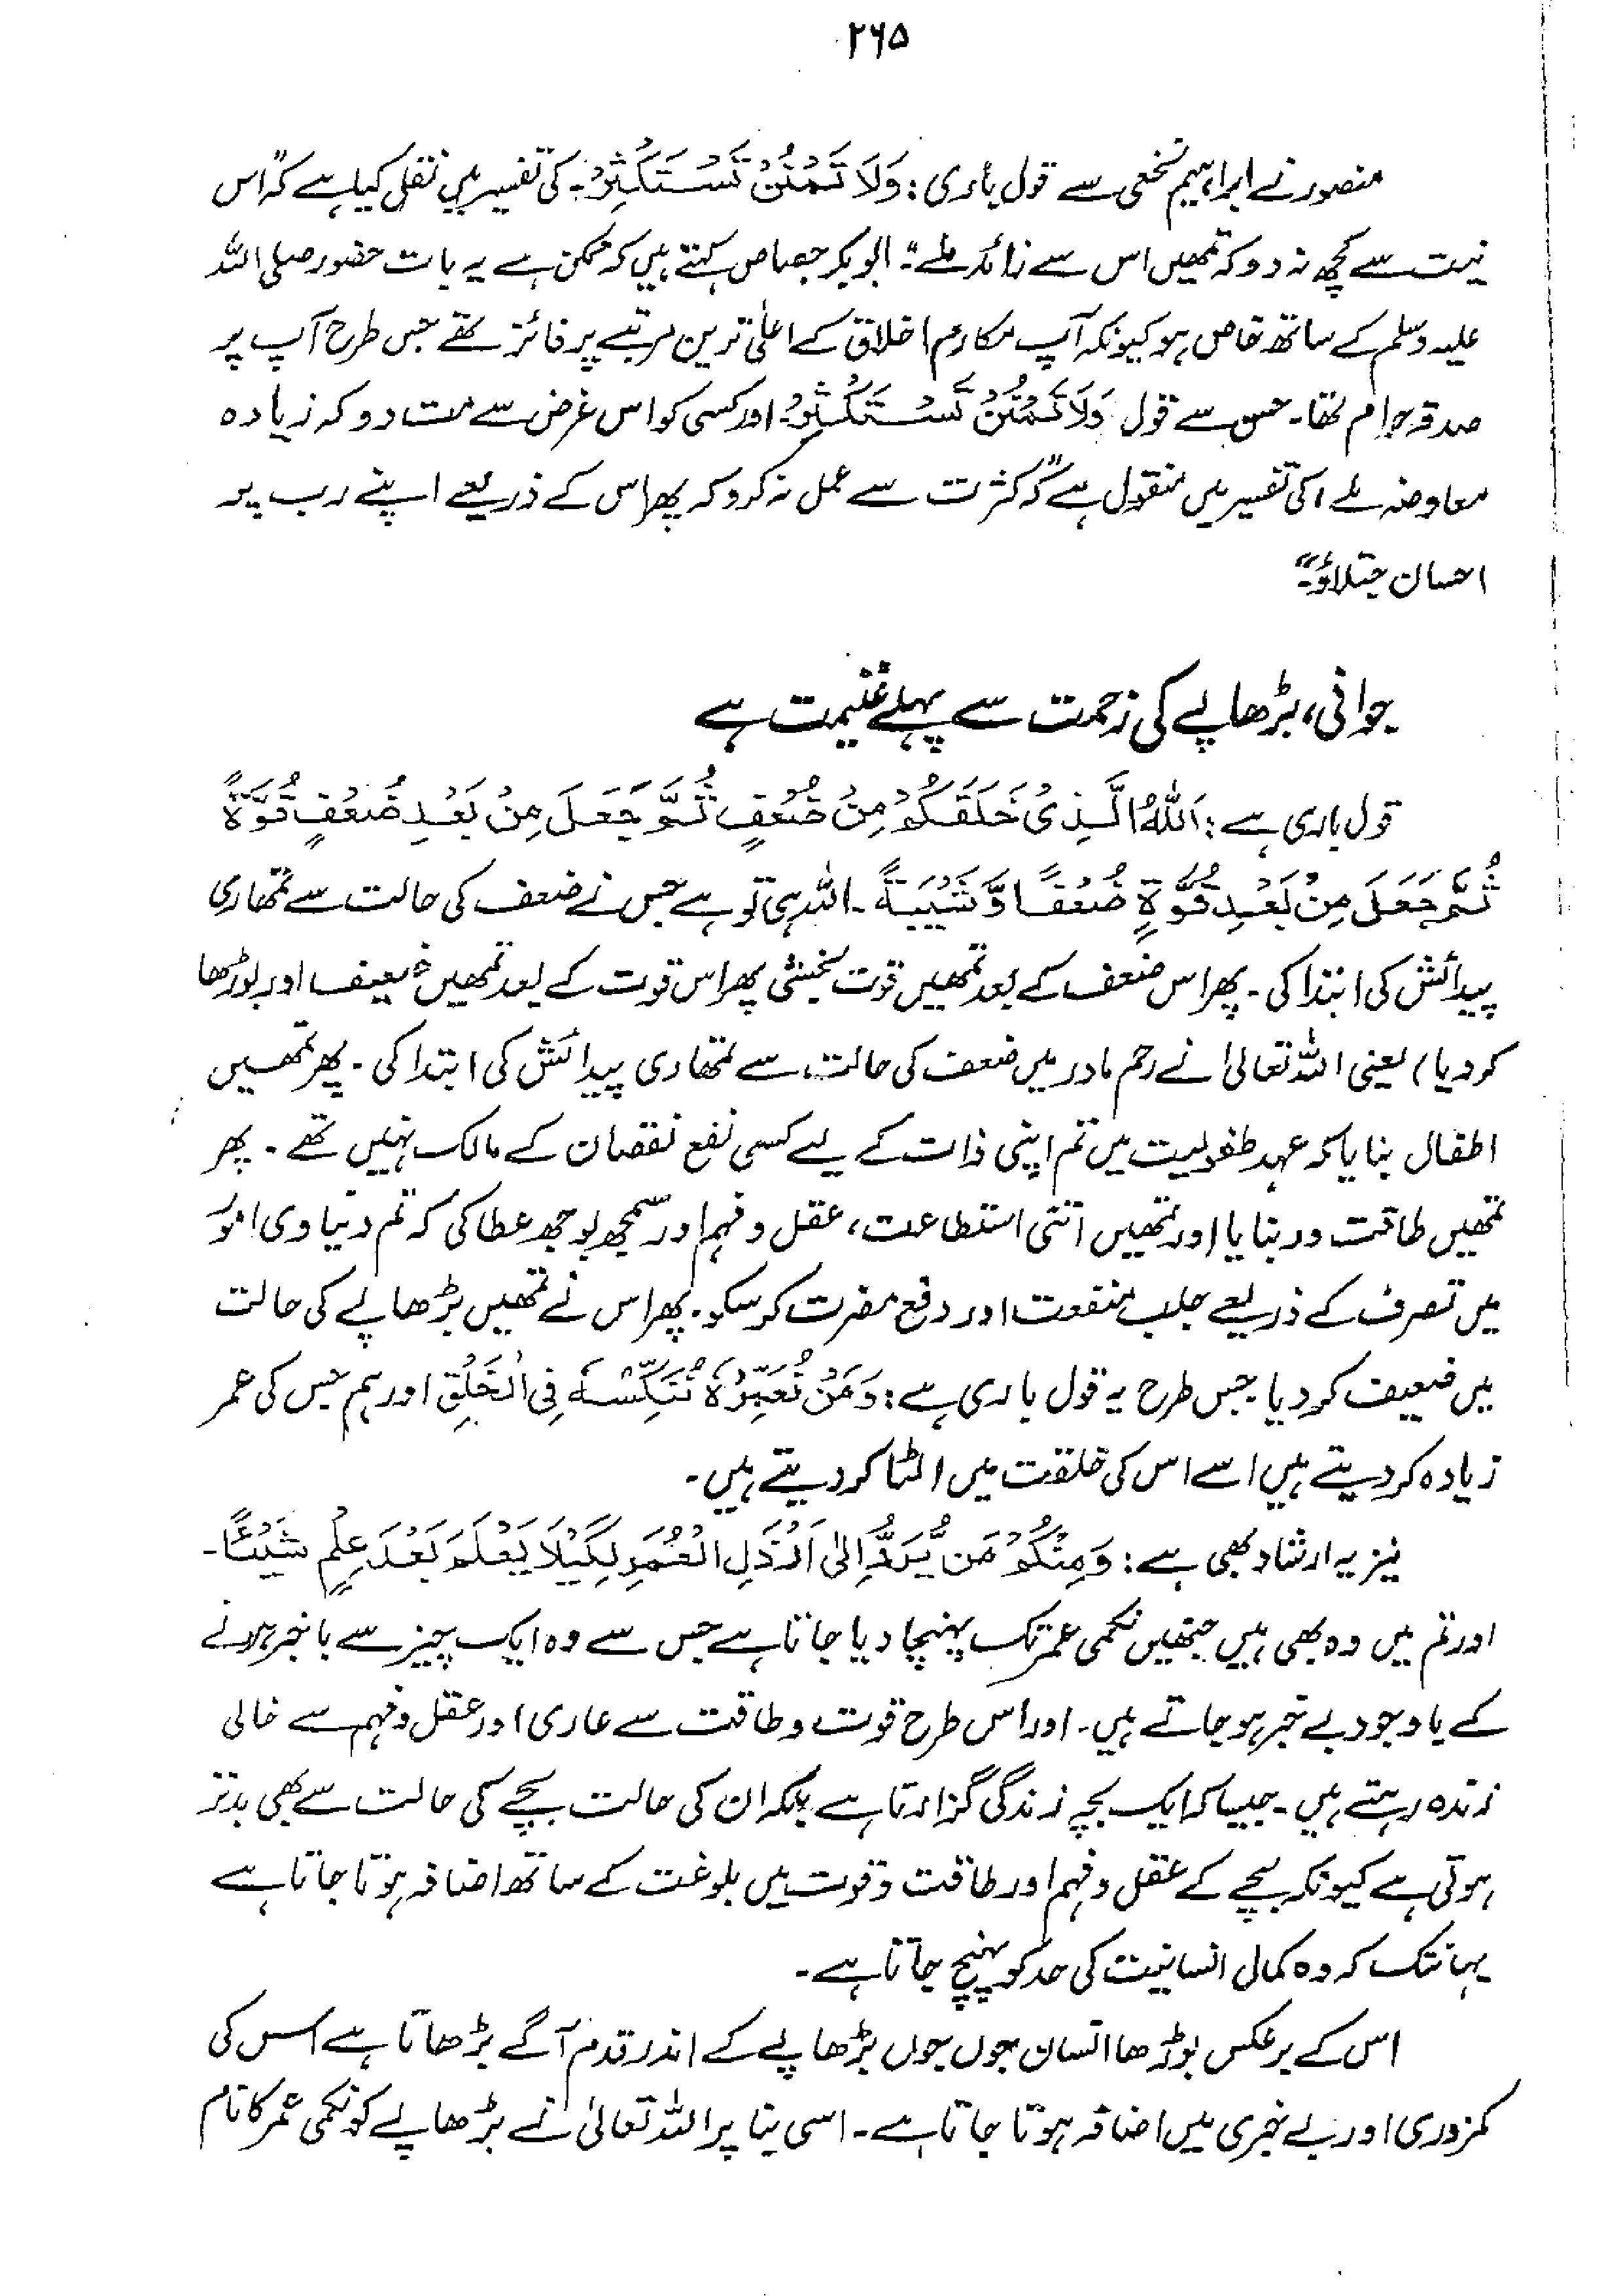 ۲۶۵
منصور نے ابراہیم نخعی سے قول باری: وَلَا تَمْنُنْ تَسْتَكْثِرُ۔ کی تفسیر میں نقل کیا ہے کہ "اس
نیت سے کچھ نہ دو کہ تمھیں اس سے زائد ملے"۔ ابو بکر جصاص کہتے ہیں کہ ممکن ہے یہ بات حضور صلی اللہ
علیہ وسلم کے ساتھ خاص ہو کیونکہ آپ مکارم اخلاق کے اعلیٰ ترین مرتبے پر فائز تھے جس طرح آپ پر
صدقہ حرام تھا۔ حسن سے قول وَلَا تَمْنُنْ تَسْتَكْثِرُ۔ اور کسی کو اس غرض سے مت دو کہ زیادہ
معاوضہ ملے) کی تفسیر میں منقول ہے کہ "کثرت سے عمل نہ کرو کہ پھر اس کے ذریعے اپنے رب پر
احسان جتلاؤ"۔
جوانی، بڑھاپے کی زحمت سے پہلے غنیمت ہے
قول باری ہے: اَللّٰهُ الَّذِىْ خَلَقَكُمْ مِنْ ضُعْفٍ ثُمَّ جَعَلَ مِنْ بَعْدِ ضُعْفٍ قُوَّةً
ثُمَّ جَعَلَ مِنْ بَعْدِ قُوَّةٍ ضُعْفًا وَّ شَيْبَةً۔ اللہ ہی تو ہے جس نے ضعف کی حالت سے تمھاری
پیدائش کی ابتدا کی۔ پھر اس ضعف کے بعد تمھیں قوت بخشی پھر اس قوت کے بعد تمھیں ضعیف اور بوڑھا
کر دیا) یعنی اللہ تعالیٰ نے رحم مادر میں ضعف کی حالت سے تمھاری پیدائش کی ابتدا کی۔ پھر تمھیں
اطفال بنایا کہ عہد طفولیت میں تم اپنی ذات کے لیے کسی نفع نقصان کے مالک نہیں تھے۔ پھر
تمھیں طاقت ور بنایا اور تمھیں اتنی استطاعت، عقل و فہم اور سمجھ بوجھ عطا کی کہ تم دنیاوی امور
میں تصرف کے ذریعے جلب منفعت اور دفع مضرت کر سکو۔ پھر اس نے تمھیں بڑھاپے کی حالت
میں ضعیف کر دیا۔ جس طرح یہ قول باری ہے: وَمَنْ نُعَمِّرْهُ نُنَكِّسْهُ فِى الْخَلْقِ اور ہم جس کی عمر
زیادہ کر دیتے ہیں اسے اس کی خلقت میں الٹا کر دیتے ہیں۔
نیز یہ ارشاد بھی ہے: وَمِنْكُمْ مَنْ يُّرَدُّ اِلٰى اَرْذَلِ الْعُمُرِ لِكَيْلَا يَعْلَمَ بَعْدَ عِلْمٍ شَيْئًا۔
اور تم میں وہ بھی ہیں جنھیں نکمی عمر تک پہنچا دیا جاتا ہے جس سے وہ ایک چیز سے باخبر ہونے
کے باوجود بے خبر ہو جاتے ہیں۔ اور اس طرح قوت و طاقت سے عاری اور عقل و فہم سے خالی
زندہ رہتے ہیں۔ جیسا کہ ایک بچہ زندگی گزارتا ہے بلکہ ان کی حالت بچے کی حالت سے بھی بدتر
ہوتی ہے کیونکہ بچے کے عقل و فہم اور طاقت و قوت میں بلوغت کے ساتھ اضافہ ہوتا جاتا ہے
یہانتک کہ وہ کمال انسانیت کی حد کو پہنچ جاتا ہے۔
اس کے برعکس بوڑھا انسان جوں جوں بڑھاپے کے اندر قدم آگے بڑھاتا ہے اس کی
کمزوری اور بے خبری میں اضافہ ہوتا جاتا ہے۔ اسی بنا پر اللہ تعالیٰ نے بڑھاپے کو نکمی عمر کا نام